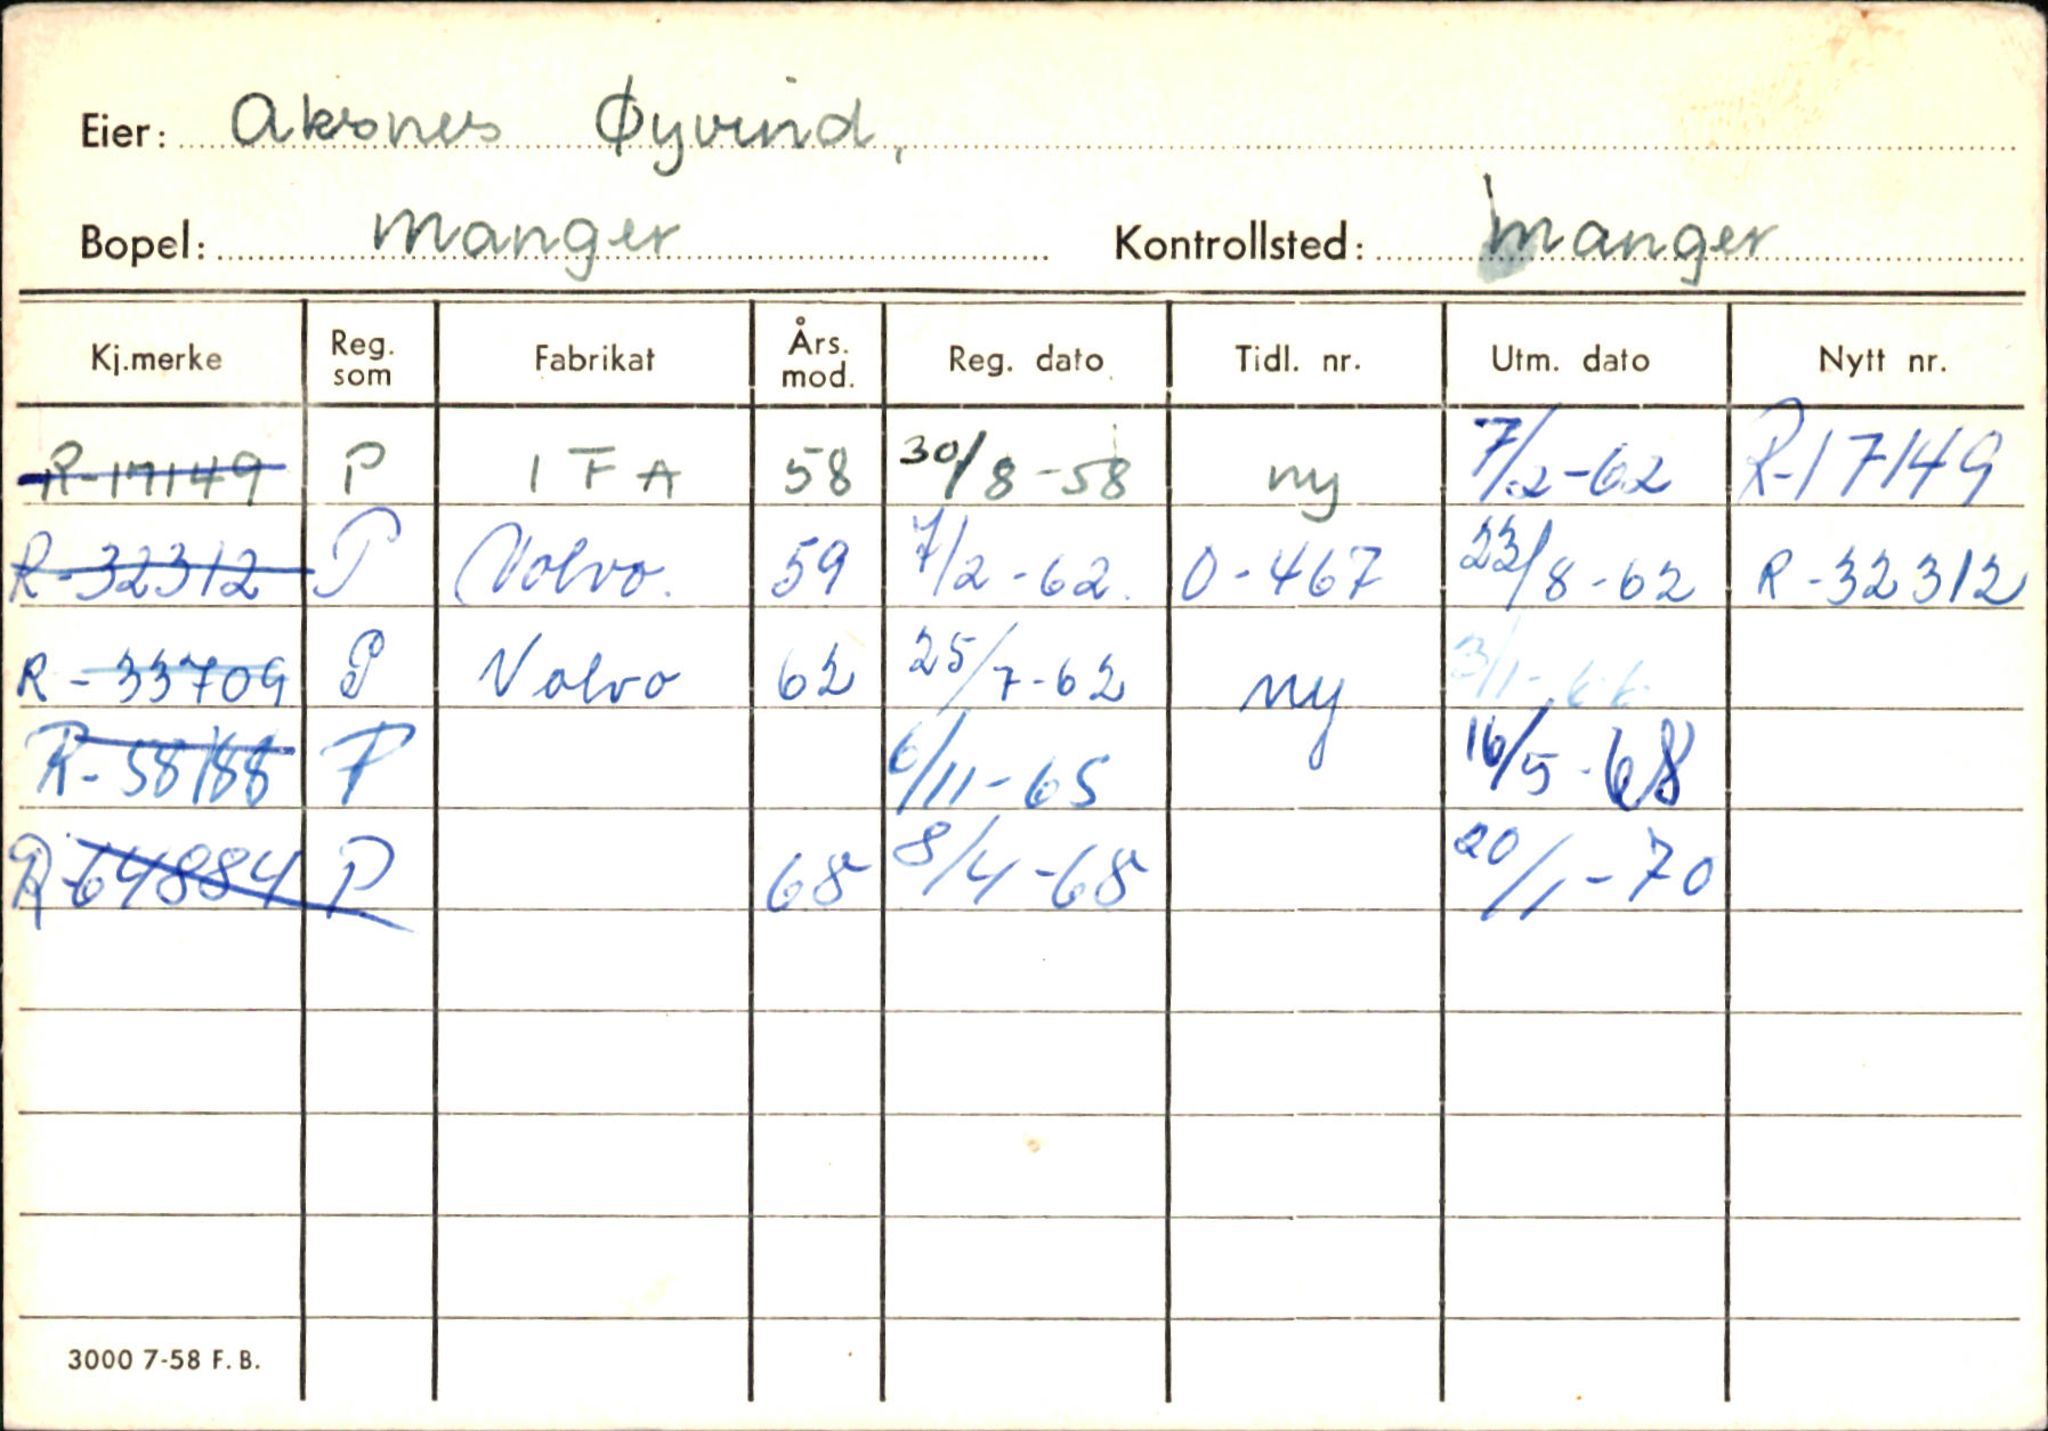 Eier: Aksnes Øyvind,
Bopel: Manger Kontrollsted: Manger
Kj.merke Reg. som Fabrikat Års. mod. Reg. dato Tidl. nr. Utm. dato Nytt nr.
R-17149 P IFA 58 30/8-58 ny 7/2-62 R-17149
R-32312 P Volvo. 59 7/2-62. O-467 23/8-62 R-32312
R-33709 P Volvo 62 25/7-62 ny 3/1-66
R-58188 P 6/11-65 16/5-68
R-64884 P 68 8/4-68 20/1-70
3000 7-58 F. B.